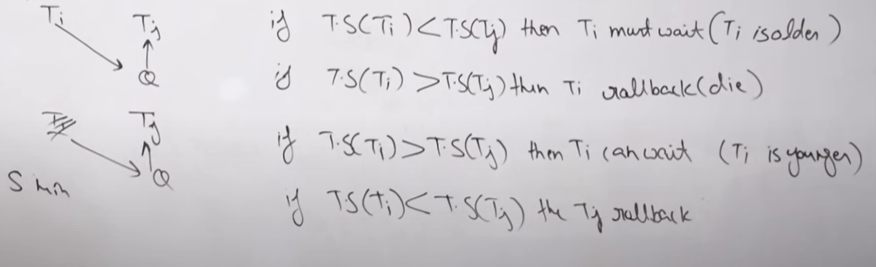 Ti Tj if T.S(Ti) < T.S(Tj) then Ti must wait (Ti is older)
Q if T.S(Ti) > T.S(Tj) then Ti rallback (die)
Tj if T.S(Ti) > T.S(Tj) then Ti can wait (Ti is younger)
Q
5 min if TS(Ti) < T.S(Tj) the Tj rallback